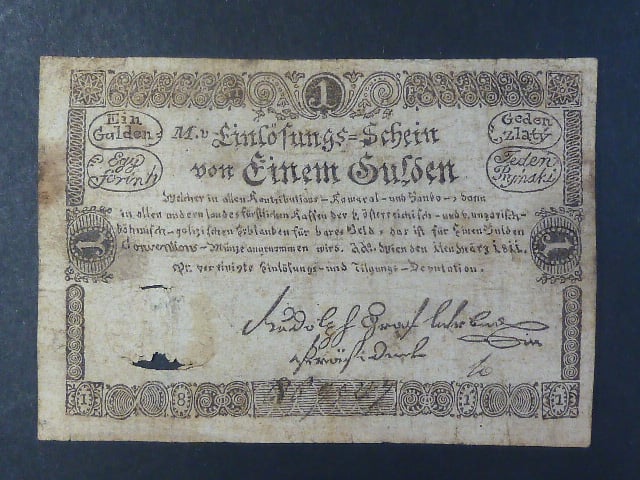 1
Ein
Gulden
M.v Einlösungs-Schein
Geden
zlatý
Egy
Forint
von Einem Gulden
Jeden
Ryński
Welcher in allen Kontributions-, Kameral- und Banko-, dann
in allen andern landesfürstlichen Kassen der k. österreichisch- und k. ungarisch-
böhmisch-galizischen Erblanden für bares Geld, das ist für Einen Gulden
Conventions-Münze angenommen wird. Wien den 1. März 1811.
Pr. vereinigte Einlösungs- und Tilgungs-Deputation.
1
1
Rudolph Graf
Präsident
1 8 1 1